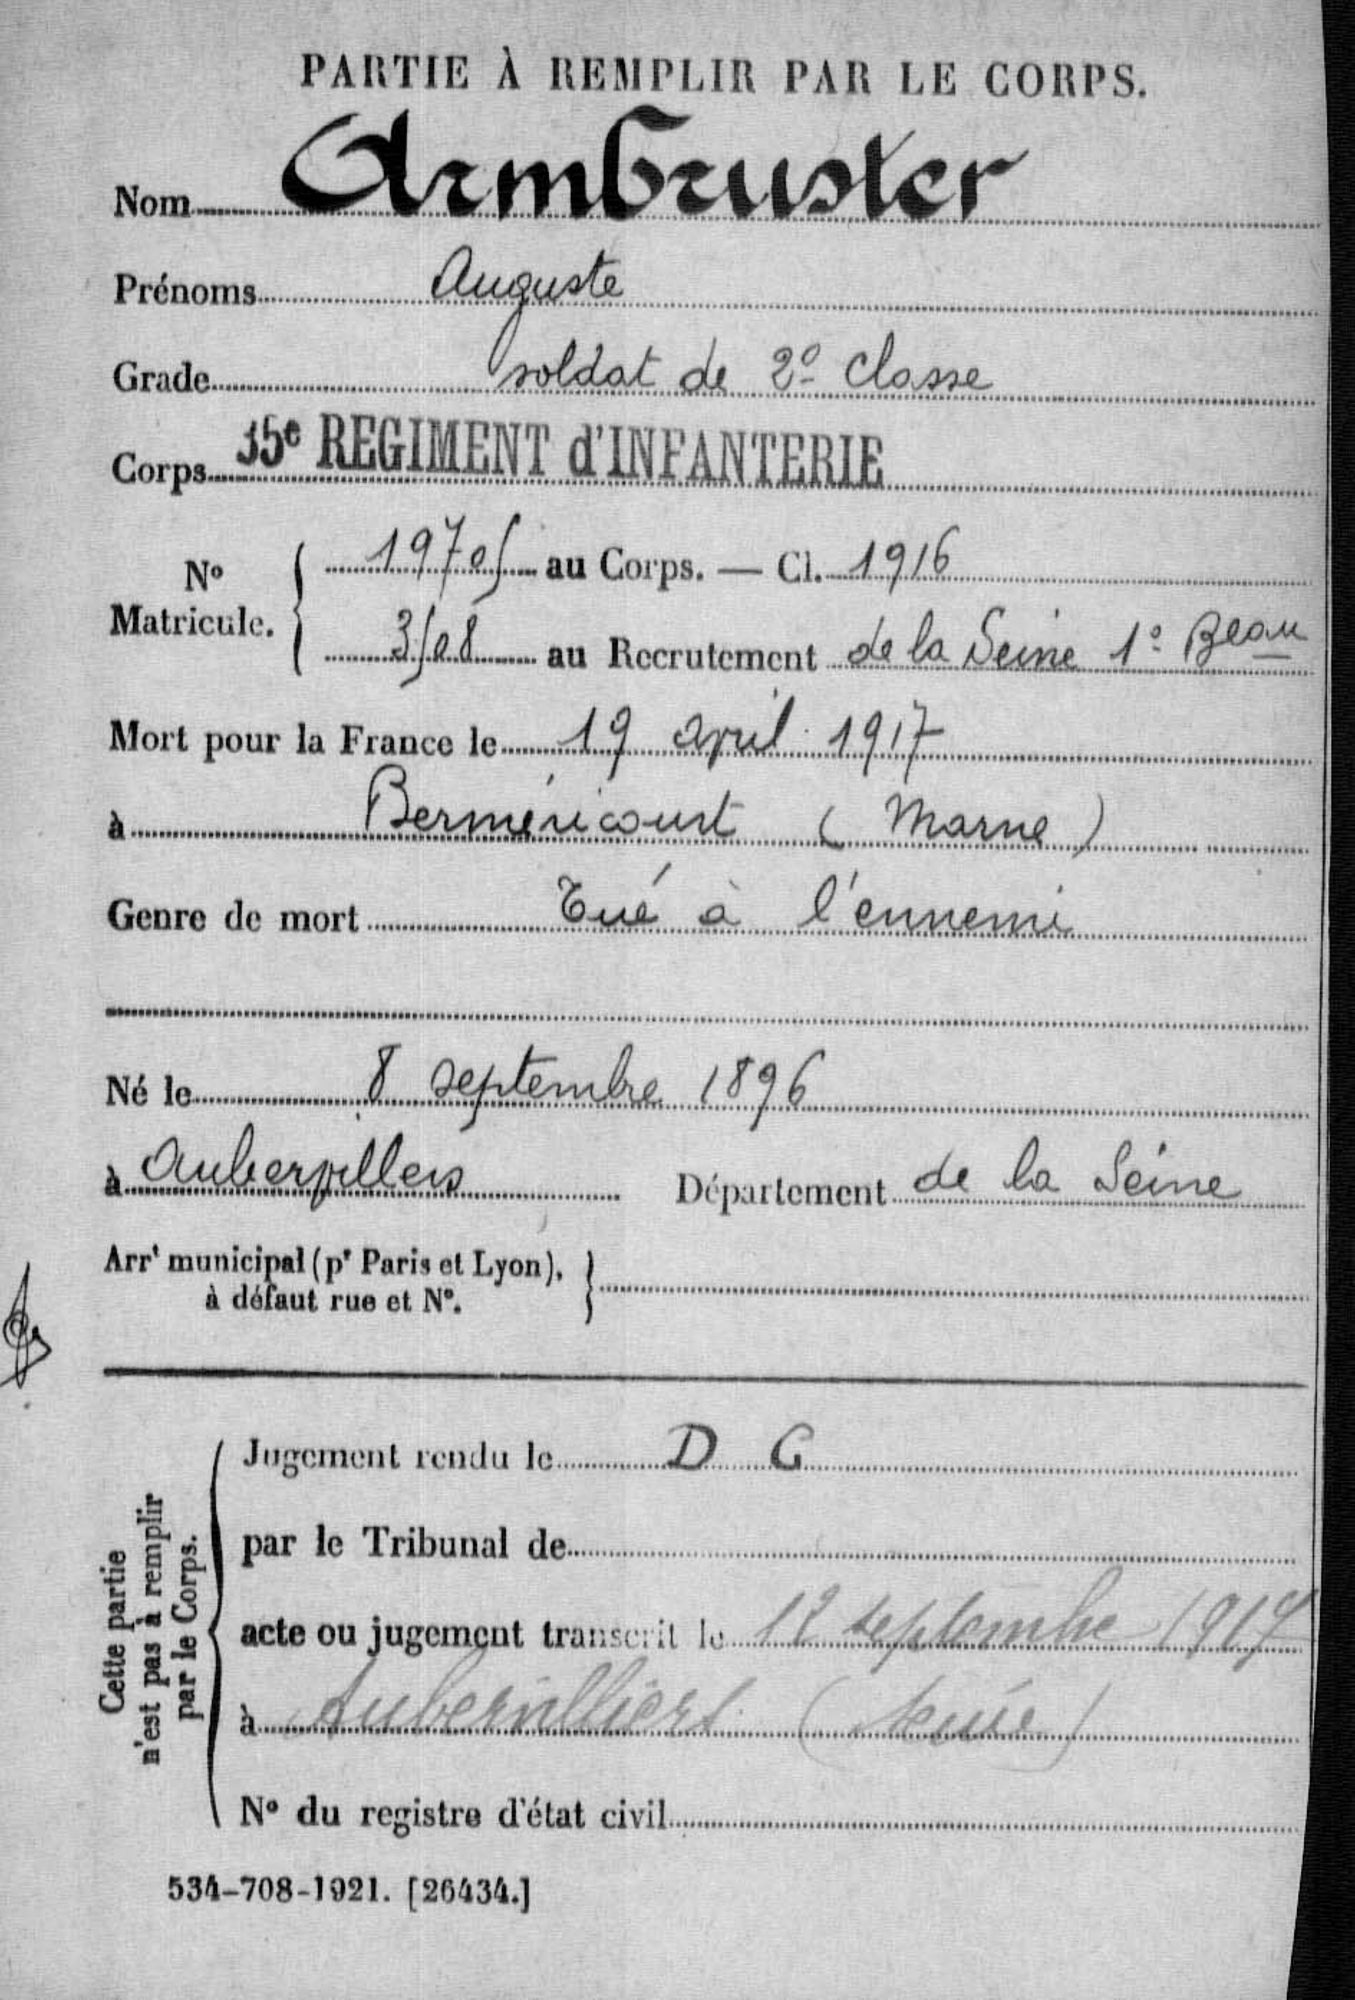 PARTIE À REMPLIR PAR LE CORPS.
Nom Armbruster
Prénoms Auguste
Grade soldat de 2e classe
Corps 35e REGIMENT d'INFANTERIE
No Matricule. { 19705 au Corps. — Cl. 1916
3508 au Recrutement de la Seine 1o Beau
Mort pour la France le 19 avril 1917
à Berméricourt (Marne)
Genre de mort Tué à l'ennemi
Né le 8 septembre 1896
à Aubervillers Département de la Seine
Arrt municipal (pr Paris et Lyon), à défaut rue et No. }
Cette partie n'est pas à remplir par le Corps.
Jugement rendu le D G
par le Tribunal de
acte ou jugement transcrit le 12 septembre 1917
à Aubervilliers (Seine)
No du registre d'état civil
534-708-1921. [26434.]